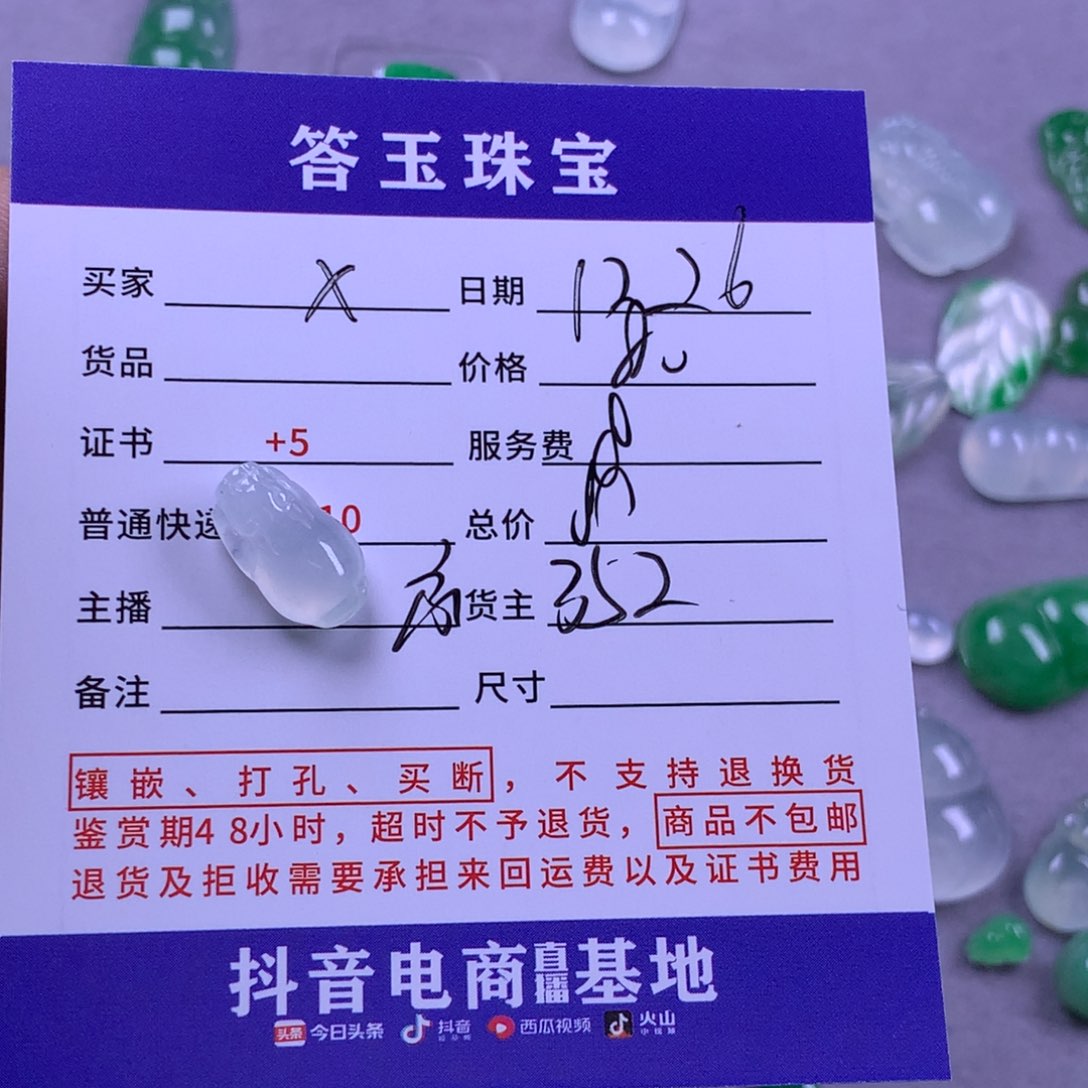 答玉珠宝
买家 X 日期 12.26
货品 价格
证书 +5 服务费
普通快递 10 总价
主播 货主 352
备注 尺寸
镶嵌、打孔、买断，不支持退换货
鉴赏期48小时，超时不予退货，商品不包邮
退货及拒收需要承担来回运费以及证书费用
抖音电商直播基地
头条 今日头条 抖音 西瓜视频 火山